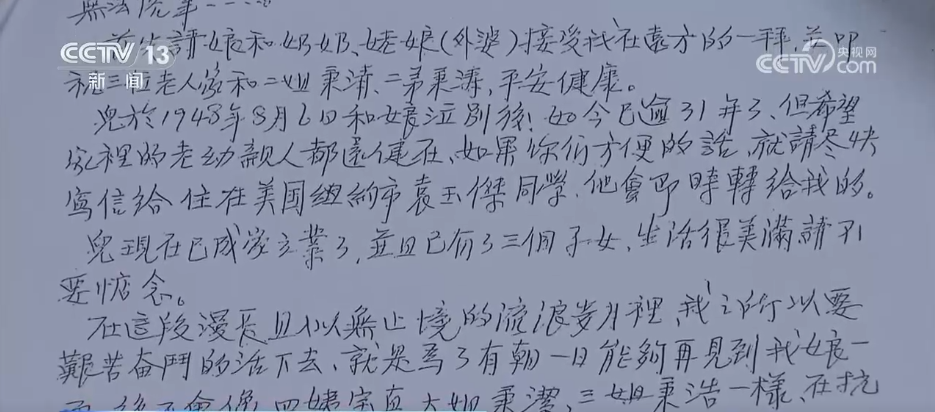 無法完畢……
首先請娘和奶奶、姥娘(外婆)接受我在遠方的一拜,並叩
祝三位老人家和二姐秉清、二弟秉濤,平安健康。
兒於1948年8月6日和娘泣別後!如今已逾31年了,但希望
家裡的老幼親人都還健在、如果你们方便的話、就請尽快
寫信給住在美国紐約市袁玉傑同學,他會即時轉給我的。
兒現在已成家立業了,並且已有了三個子女,生活很美滿請不
要惦念。
在這段漫長且以無止境的流浪岁月裡,我之所以要
艱苦奋鬥的活下去、就是為了有朝一日能夠再見到我娘一
四姨宝真大姐秉潔、三姐秉浩一樣,在抗
CCTV 13
新闻
央视网
CCTV.com